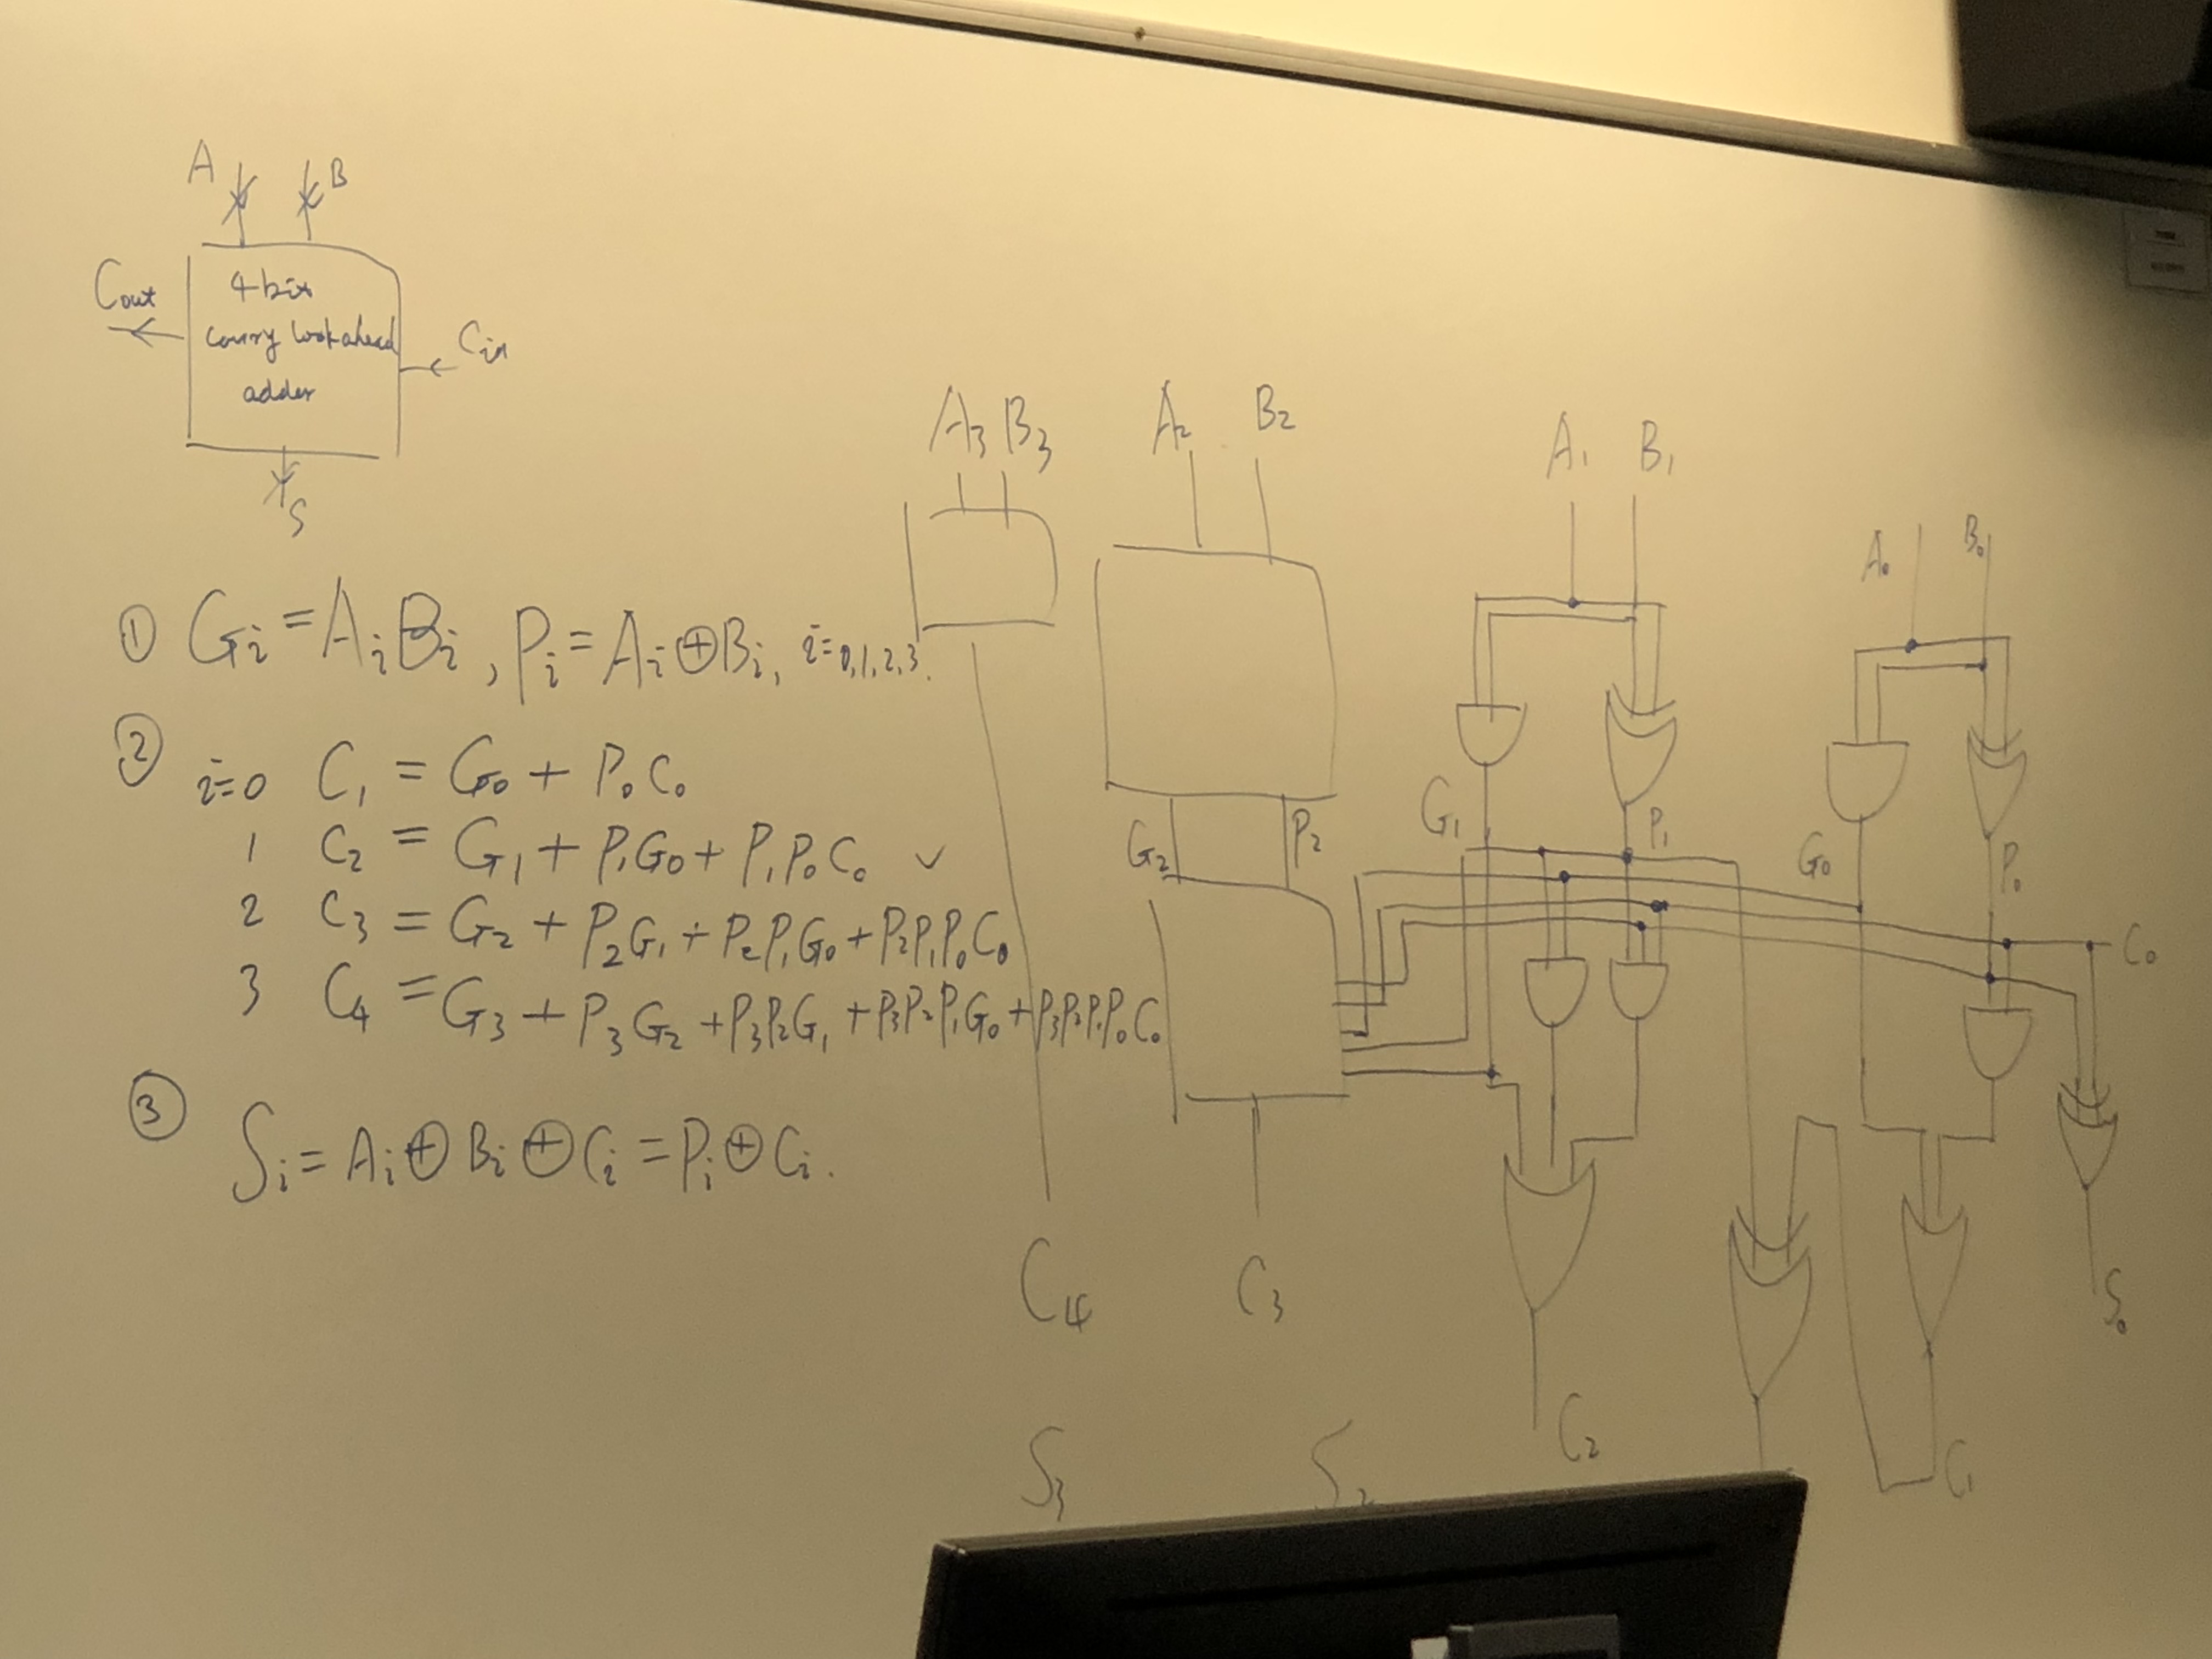 A B
Cout
4-bit
carry lookahead
adder
Cin
S
① Gi = AiBi, Pi = Ai⊕Bi, i=0,1,2,3.
② i=0 C1 = G0 + P0C0
1 C2 = G1 + P1G0 + P1P0C0 ✓
2 C3 = G2 + P2G1 + P2P1G0 + P2P1P0C0
3 C4 = G3 + P3G2 + P3P2G1 + P3P2P1G0 + P3P2P1P0C0
③ Si = Ai⊕Bi⊕Ci = Pi⊕Ci.
A3 B3 A2 B2 A1 B1 A0 B0
G2 P2 G1 P1 G0 P0
C0
C4 C3 C2 C1 S0
S3 S2